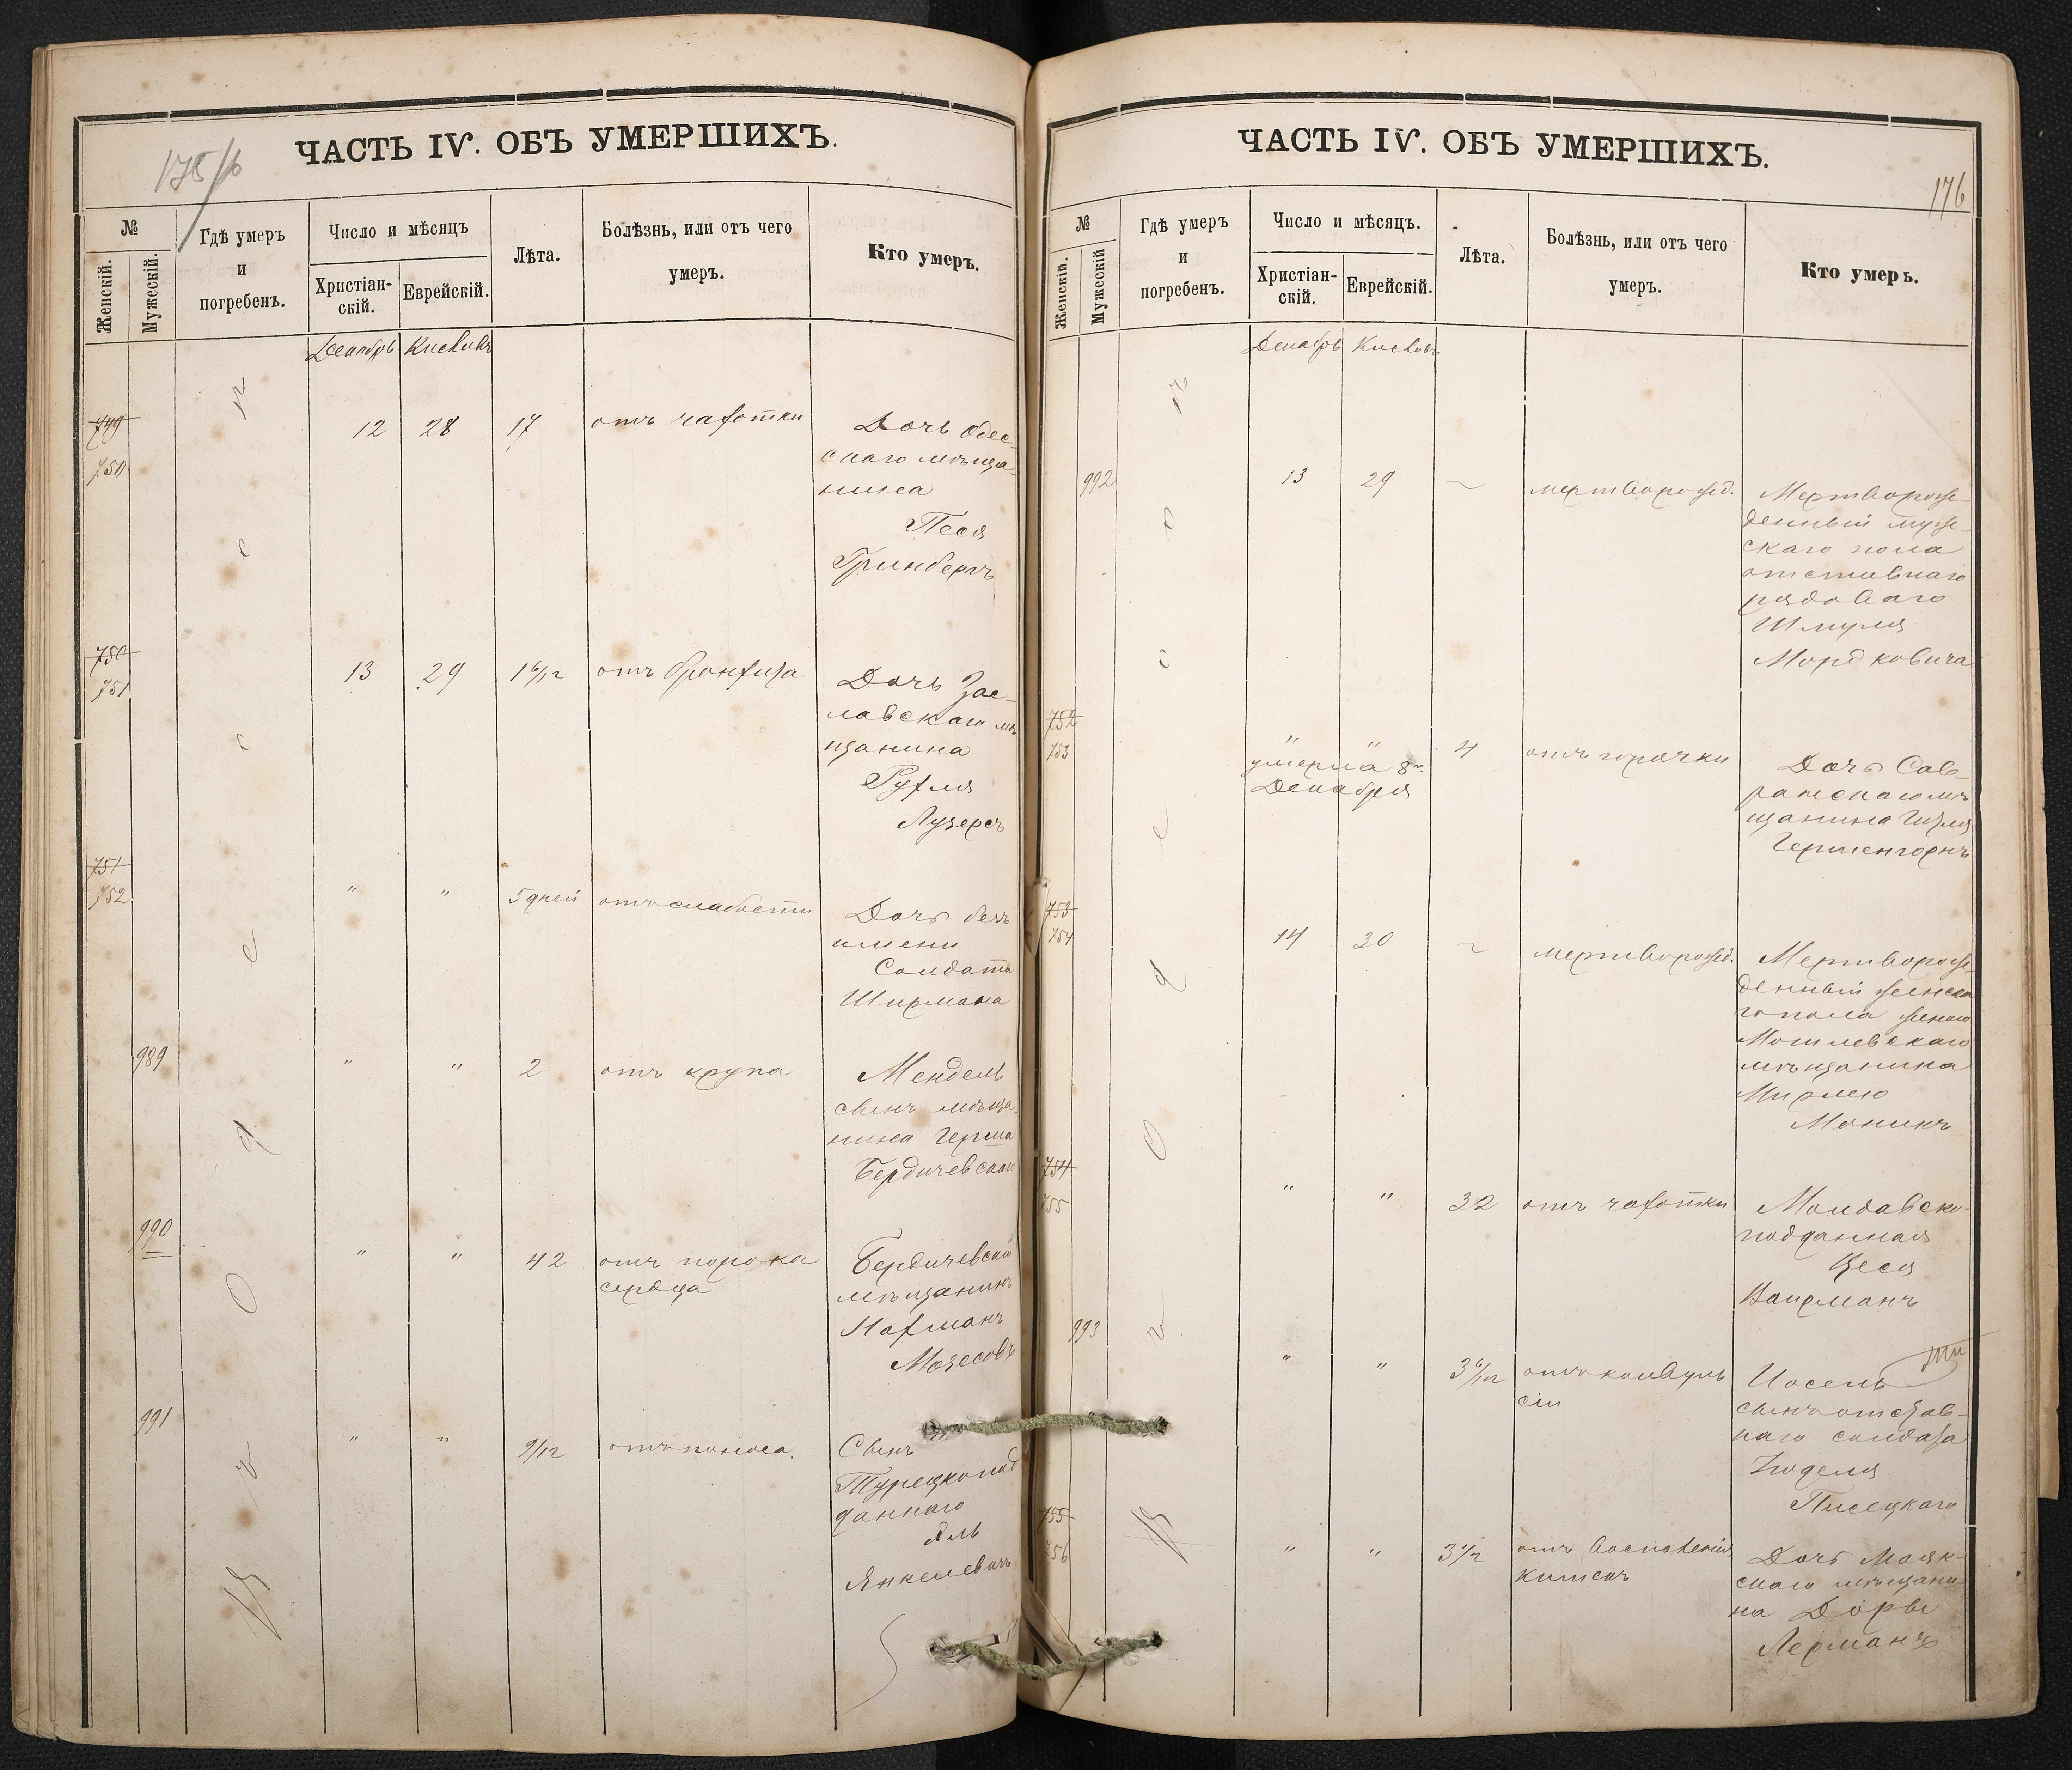 ЧАСТЬ IV. ОБЪ УМЕРШИХЪ.
175/б
№
Женскій.
Мужескій.
Гдѣ умеръ
и
погребенъ.
Число и мѣсяцъ
Христіан-
скій.
Еврейскій.
Лѣта.
Болѣзнь, или отъ чего
умеръ.
Кто умеръ.
Декабрь Кислевъ
749
750
12 28 17 отъ чахотки
Дочь Одес-
скаго мѣща-
нина
Песя
Гринбергъ
750
751
13 29 1 6/12 отъ бронхита
Дочь Зас-
лавскаго мѣ
щанина
Рухля
Луцеръ
751
752
" " 5 дней отъ слабости
Дочь безъ
имени
Солдата
Ширмана
989
" " 2 отъ крупа
Мендель
сынъ мѣща-
нина Герша
Бердичевскаго
990
" " 42 отъ порока
сердца
Бердичевскій
мѣщанинъ
Нахманъ
991
" " 9/12 отъ поноса.
Сынъ
Турецкопод
даннаго
Янкелевичъ
въ г. Одессѣ
ЧАСТЬ IV. ОБЪ УМЕРШИХЪ.
176
№
Женскій.
Мужескій
Гдѣ умеръ
и
погребенъ.
Число и мѣсяцъ.
Христіан-
скій.
Еврейскій.
Лѣта.
Болѣзнь, или отъ чего
умеръ.
Кто умеръ.
Декабрь Кислевъ
992
13 29 — мертворожд.
Мертворож-
денный муж-
скаго пола
отставнаго
рядоваго
Шмуля
Мордковича
752
753
" " 4 отъ горячки
умерла 8го
Декабря
Дочь Сав-
ранскаго мѣ
щанина
753
754
14 30 — мертворожд.
Мертворож-
денный женска
го пола женою
Могилевскаго
мѣщанина
754
755
" " 32 отъ чахотки
Молдавско-
подданная
Цеся
Вайрманъ
993
" " 3 6/12 отъ конвуль
сіи
Иосель
сынъ отстав-
наго солдата
Юделя
Писецкаго
755
756
" " 3 1/2 отъ воспаленія
кишекъ
Дочь Маяк-
скаго мѣщани-
на Доры
Лерманъ
въ г. Одессѣ